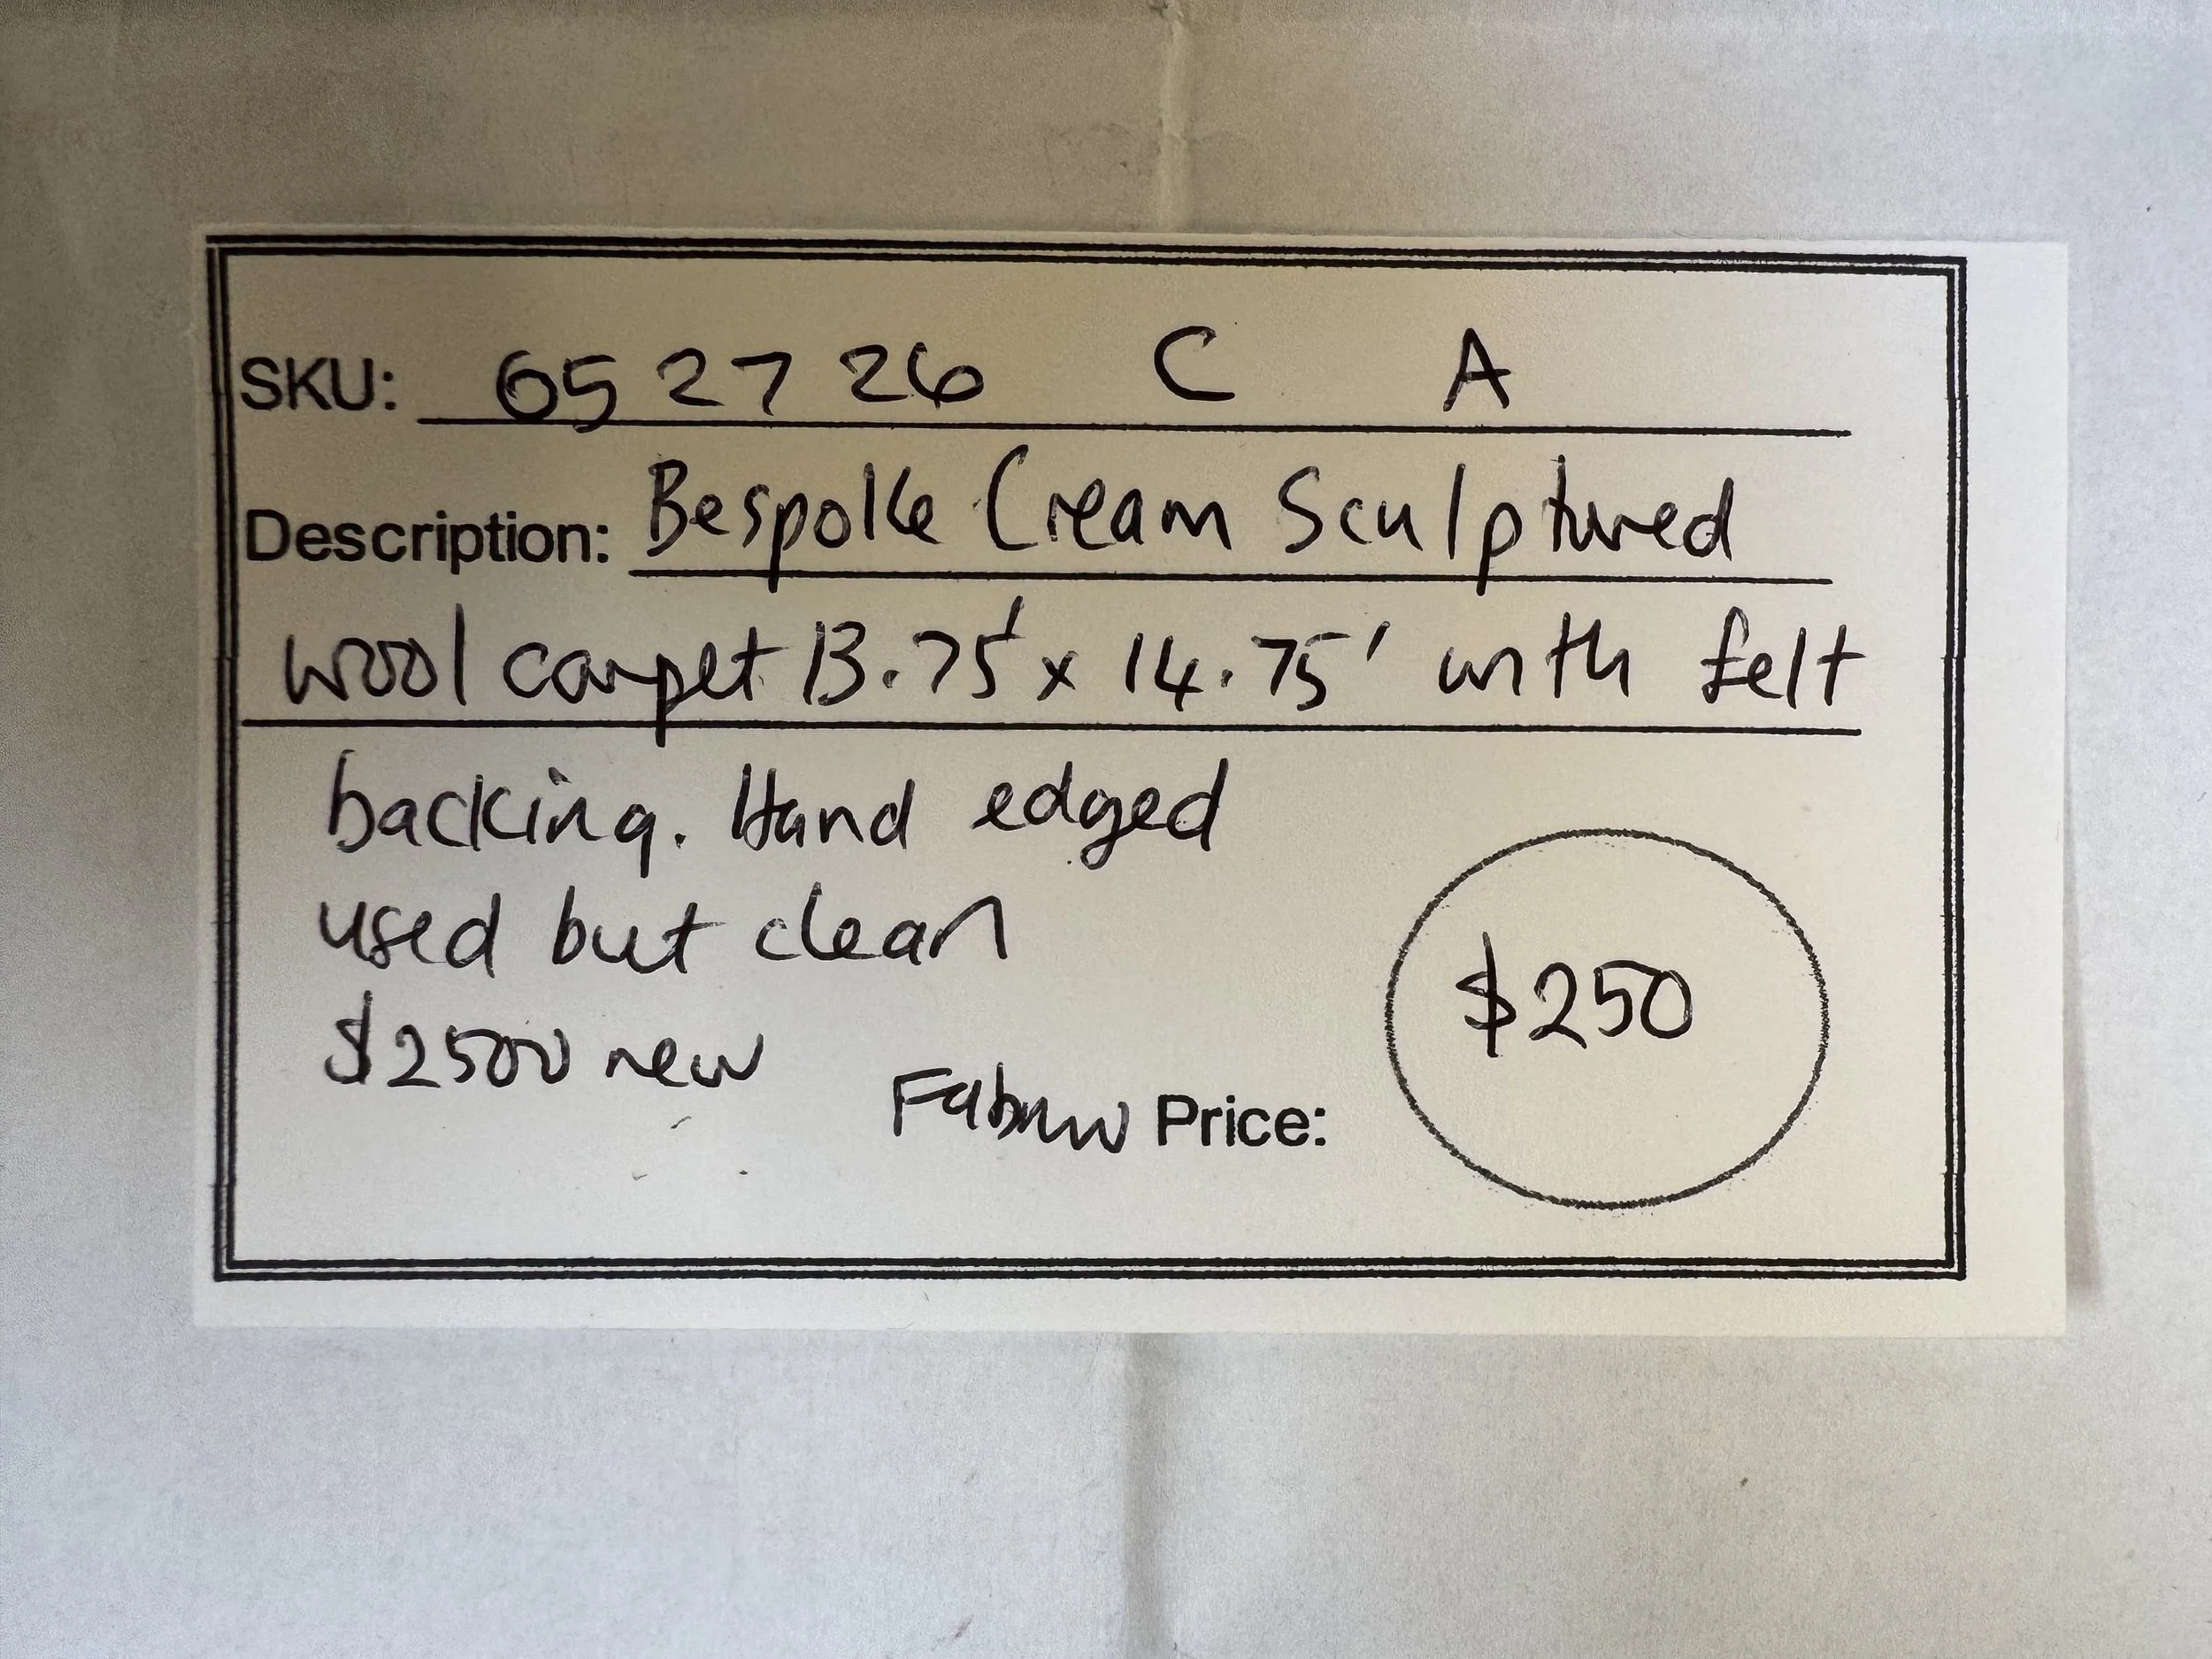 SKU: 652726 C A
Description: Bespoke Cream Sculptured
wool carpet 13.75' x 14.75' with felt
backing. Hand edged
used but clean
$2500 new
Price:
$250